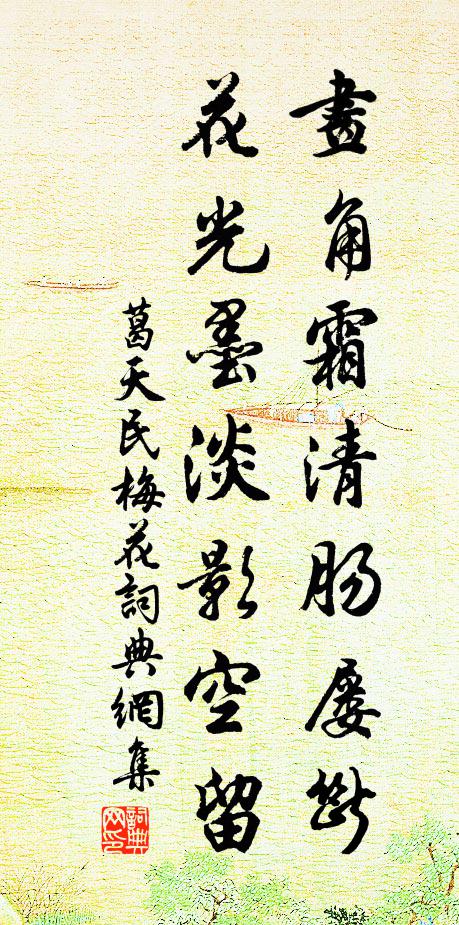 畫角霜清腸屢斷
花光墨淡影空留
葛天民梅花詞典網集
詞典网印